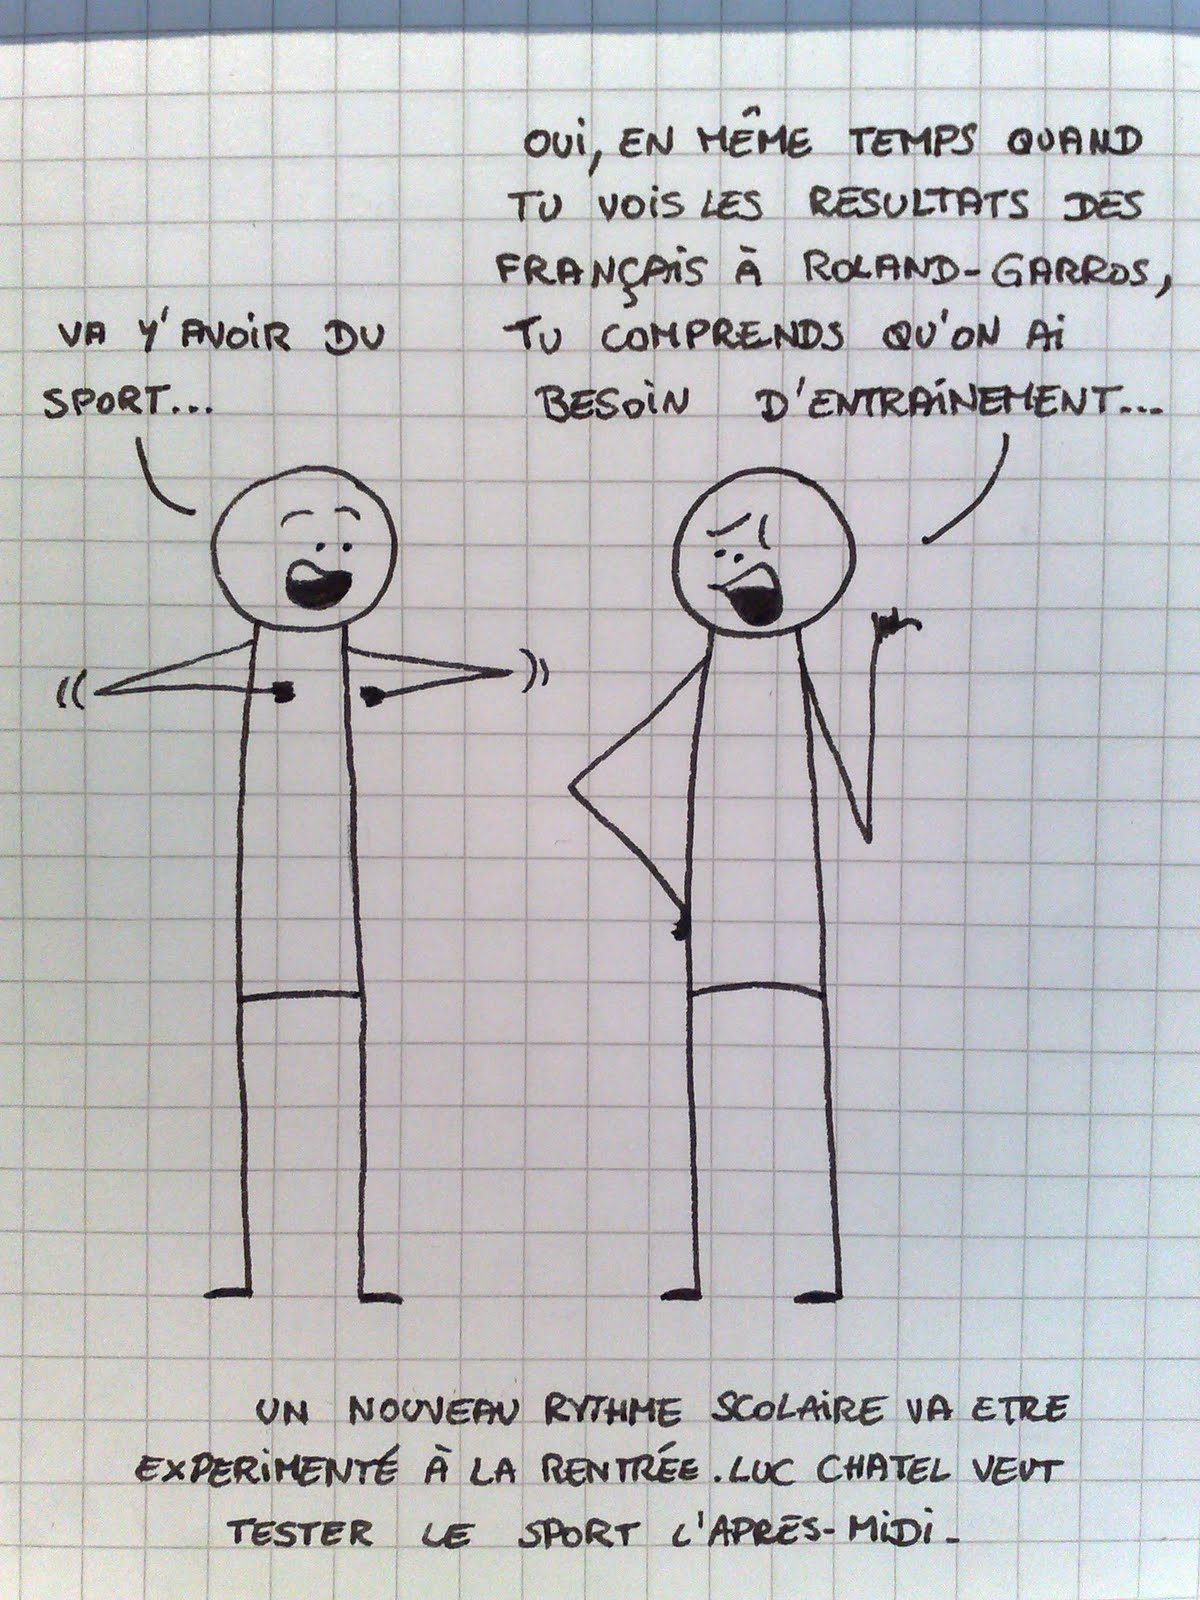 VA Y'AVOIR DU
SPORT...
OUI, EN MÊME TEMPS QUAND
TU VOIS LES RESULTATS DES
FRANÇAIS À ROLAND-GARROS,
TU COMPRENDS QU'ON AI
BESOIN D'ENTRAINEMENT...
UN NOUVEAU RYTHME SCOLAIRE VA ETRE
EXPERIMENTÉ À LA RENTRÉE. LUC CHATEL VEUT
TESTER LE SPORT L'APRES-MIDI.